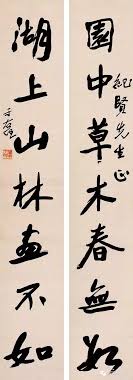 園中草木春無數
紀賢先生正
湖上山林畫不如
于右任